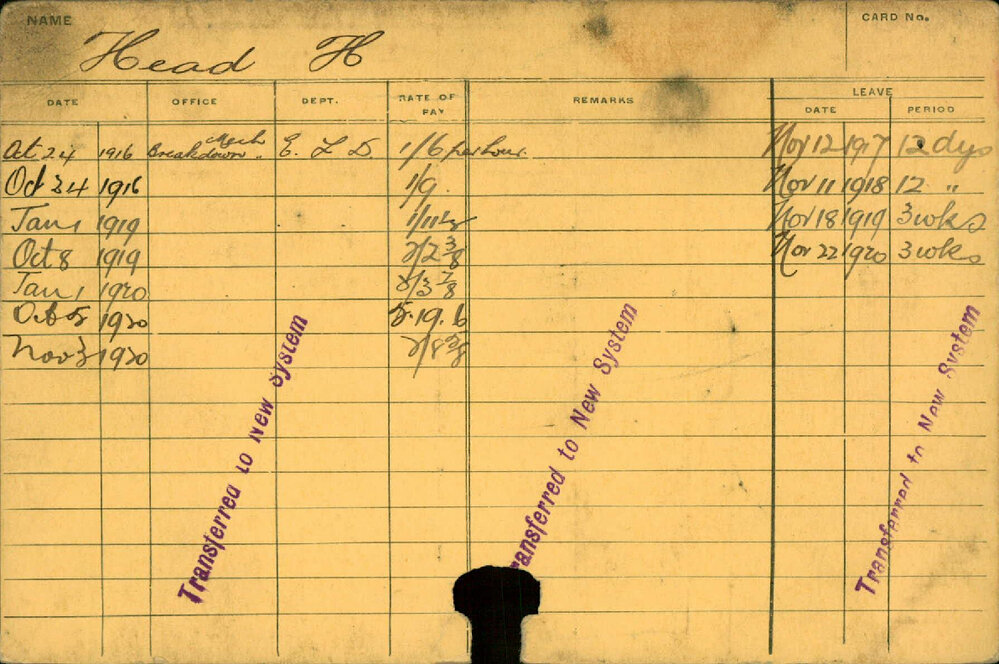 NAME
CARD No.
Head H
DATE OFFICE DEPT. RATE OF PAY REMARKS LEAVE
DATE PERIOD
24 1916 Mech Breakdown E. L D. 1/6 per hour. Nov 12 1917 12 dys
Oct 24 1916 1/9. Nov 11 1918 12 "
Jan 1 1919 1/11½ Nov 18 1919 3 wks
Oct 8 1919 2/2 3/8 Nov 22 1920 3 wks
Jan 1 1920 2/3 7/8
Oct 5 1920 5.19.6
Nov 3 1920
Transferred to New System
Transferred to New System
Transferred to New System